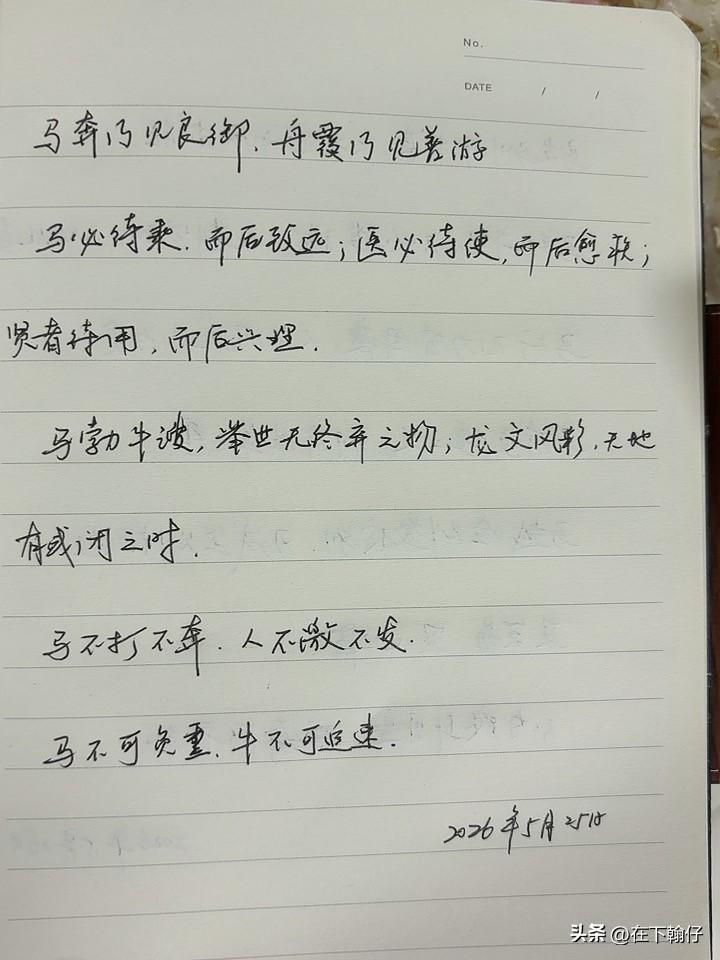 No.
DATE / /
马奔乃见良御,舟覆乃见善游
马必待乘,而后致远;医必待使,而后愈疾;
贤者待用,而后兴理.
马勃牛溲,举世无终弃之物;龙文风彩,天地
有或闭之时.
马不打不奔.人不激不发.
马不可负重,牛不可追速.
2026年5月25日
头条 @在下翰仔